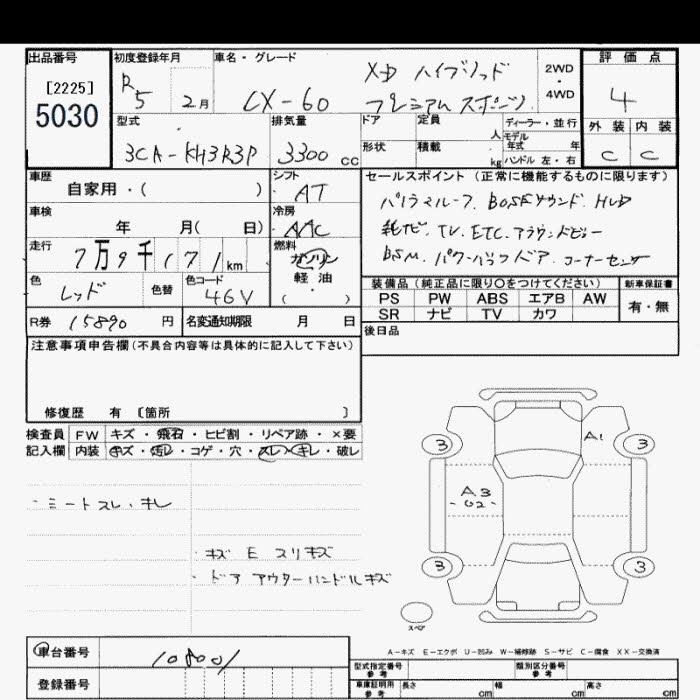 出品番号 初度登録年月 車名・グレード 評価点
[2225] 5030
R5 2月
XD ハイブリッド
CX-60 プレミアムスポーツ
2WD・4WD
4
型式 排気量 ドア 定員 人 ディーラー・並行 外装 内装
モデル年式 年
3CA-KH3R3P 3300cc 形状 積載 kg ハンドル 左・右 C C
車歴 シフト セールスポイント (正常に機能するものに限ります)
自家用・( ) AT
パノラマルーフ、BOSEサウンド、HUD
車検 冷房
年 月( 日) AAC
純ナビ、TV、ETC、アラウンドビュー
走行 燃料
7万9千171km ガソリン
BSM、パワーバックドア、コーナーセンサー
軽油
・( )
色 色替 色コード 装備品 (純正品に限り○をつけてください) 新車保証書
レッド 46V
PS PW ABS エアB AW 有・無
SR ナビ TV カワ
R券 15890円 名変通知期限 月 日
後日品
注意事項申告欄 (不具合内容等は具体的に記入して下さい)
修復歴 有 〔箇所 〕
検査員 FW キズ・飛石・ヒビ割・リペア跡・×要
記入欄 内装 キズ・汚レ・コゲ・穴・スレ・キレ・破レ
3 A1 3
A3
-U2-
・シートスレ・キレ
・キズ E スリキズ
・ドアアウターハンドルキズ
3 3
スペア
A-キズ E-エクボ U-凹み W-補修跡 S-サビ C-腐食 XX-交換済
車台番号 108001
登録番号
型式指定番号 参考 類別区分番号 参考
車庫証明用 参考 長さ cm 幅 cm 高さ cm